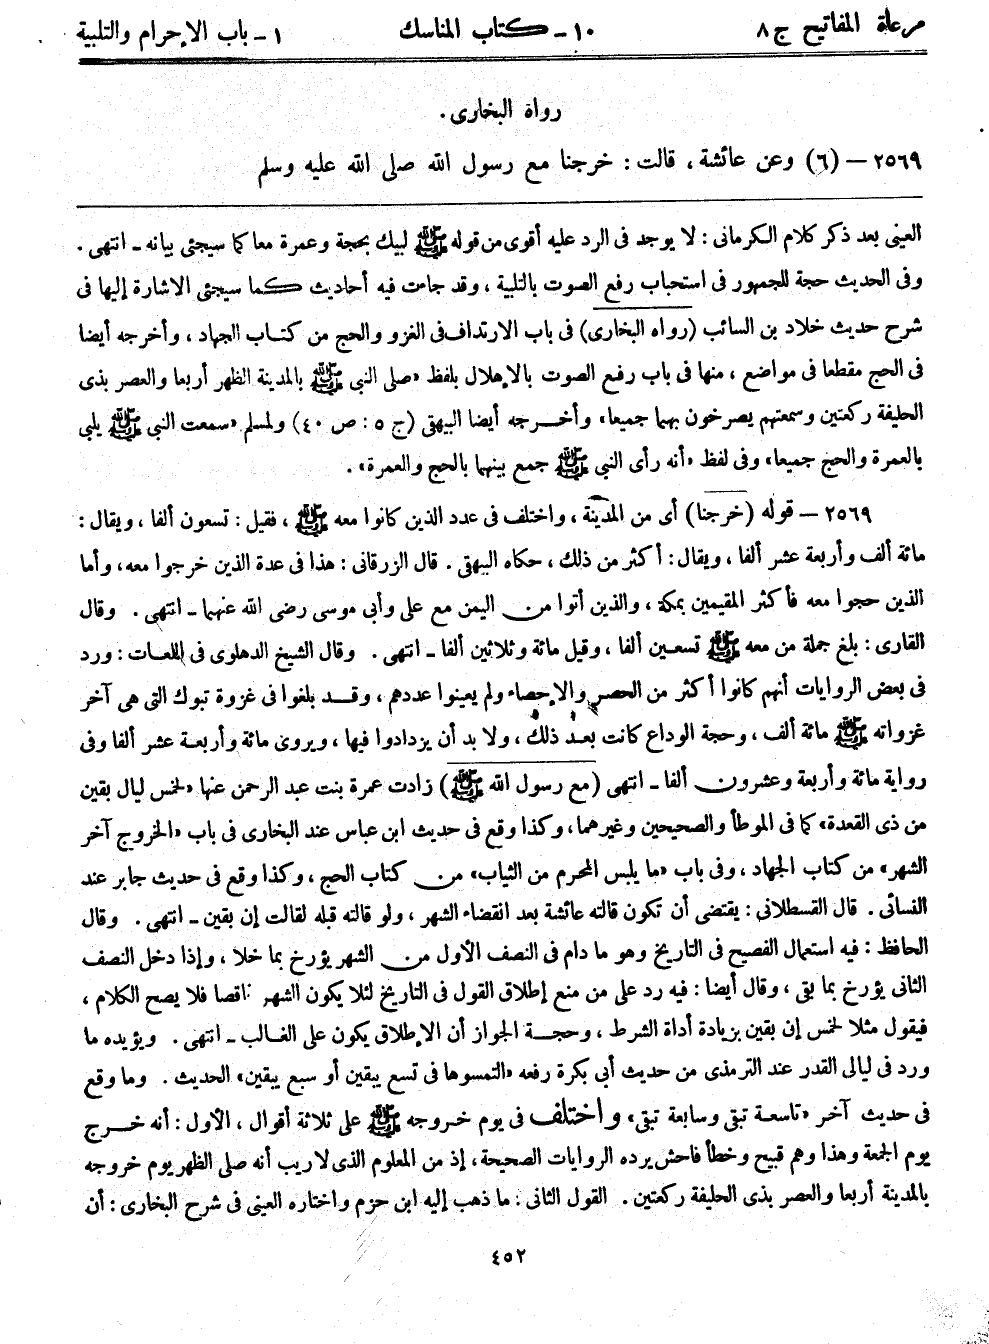 مرعاة المفاتيح ج ٨ ١٠ – كتاب المناسك ١ – باب الإحرام والتلبية
رواه البخارى .
٢٥٦٩ – (٦) وعن عائشة ، قالت : خرجنا مع رسول الله صلى الله عليه وسلم
العينى بعد ذكر كلام الكرمانى : لا يوجد فى الرد عليه أقوى من قوله ﷺ لبيك بحجة وعمرة معا كما سيجئى بيانه – انتهى .
وفى الحديث حجة للجمهور فى استحباب رفع الصوت بالتلبية ، وقد جاءت فيه أحاديث كما سيجئى الاشارة إليها فى
شرح حديث خلاد بن السائب (رواه البخارى) فى باب الارتداف فى الغزو والحج من كتاب الجهاد ، وأخرجه أيضا
فى الحج مقطعا فى مواضع ، منها فى باب رفع الصوت بالإهلال بلفظ «صلى النبى ﷺ بالمدينة الظهر أربعا والعصر بذى
الحليفة ركعتين وسمعتهم يصرخون بهما جميعا» وأخرجه أيضا البيهقى (ج ٥ : ص ٤٠) ولمسلم «سمعت النبى ﷺ يلبى
بالعمرة والحج جميعا» وفى لفظ «أنه رأى النبى ﷺ جمع بينهما بالحج والعمرة» .
٢٥٦٩ – قوله (خرجنا) أى من المدينة ، واختلف فى عدد الذين كانوا معه ﷺ ، فقيل : تسعون ألفا ، ويقال :
مائة ألف وأربعة عشر ألفا ، ويقال : أكثر من ذلك ، حكاه البيهقى . قال الزرقانى : هذا فى عدة الذين خرجوا معه، وأما
الذين حجوا معه فأكثر المقيمين بمكة ، والذين أتوا من اليمن مع على وأبى موسى رضى الله عنهما – انتهى . وقال
القارى : بلغ جملة من معه ﷺ تسعين ألفا ، وقيل مائة وثلاثين ألفا – انتهى . وقال الشيخ الدهلوى فى اللعات : ورد
فى بعض الروايات أنهم كانوا أكثر من الحصر والإحصاء ولم يعينوا عددهم ، وقد بلغوا فى غزوة تبوك التى هى آخر
غزواته ﷺ مائة ألف ، وحجة الوداع كانت بعد ذلك ، ولا بد أن يزدادوا فيها ، ويروى مائة وأربعة عشر ألفا وفى
رواية مائة وأربعة وعشرون ألفا – انتهى (مع رسول الله ﷺ) زادت عمرة بنت عبد الرحمن عنها «لخمس ليال بقين
من ذى القعدة» كما فى الموطأ والصحيحين وغيرهما، وكذا وقع فى حديث ابن عباس عند البخارى فى باب «الخروج آخر
الشهر» من كتاب الجهاد ، وفى باب «ما يلبس المحرم من الثياب» من كتاب الحج ، وكذا وقع فى حديث جابر عند
النسائى . قال القسطلانى : يقتضى أن تكون قالته عائشة بعد انقضاء الشهر ، ولو قالته قبله لقالت إن بقين – انتهى . وقال
الحافظ : فيه استعمال الفصيح فى التاريخ وهو ما دام فى النصف الأول من الشهر يؤرخ بما خلا ، وإذا دخل النصف
الثانى يؤرخ بما بقى ، وقال أيضا : فيه رد على من منع إطلاق القول فى التاريخ لئلا يكون الشهر ناقصا فلا يصح الكلام ،
فيقول مثلا لخمس إن بقين بزيادة أداة الشرط ، وحجة الجواز أن الإطلاق يكون على الغالب – انتهى . ويؤيده ما
ورد فى ليالى القدر عند الترمذى من حديث أبى بكرة رفعه «التمسوها فى تسع يبقين أو سبع يبقين» الحديث . وما وقع
فى حديث آخر «تاسعة تبقى وسابعة تبقى» واختلف فى يوم خروجه ﷺ على ثلاثة أقوال ، الأول : أنه خرج
يوم الجمعة وهذا وهم قبيح وخطأ فاحش يرده الروايات الصحيحة، إذ من المعلوم الذى لا ريب أنه صلى الظهر يوم خروجه
بالمدينة أربعا والعصر بذى الحليفة ركعتين . القول الثانى : ما ذهب إليه ابن حزم واختاره العينى فى شرح البخارى : أن
٤٥٢